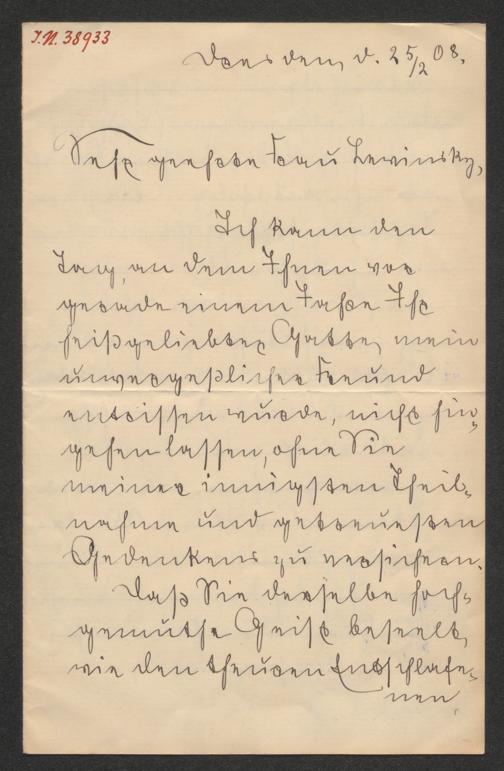 I.N. 38933
Dresden, d. 25/2 08.
Sehr geehrte Frau Lewinsky,
Ich kann den
Tag, an dem Ihnen vor
gerade einem Jahre Ihr
heißgeliebter Gatte, mein
unvergeßlicher Freund
entrissen wurde, nicht hin-
gehen lassen, ohne Sie
meiner innigsten Theil-
nahme und getreuesten
Gedenkens zu versichern.
Daß Sie derselbe hoch-
gemuthe Geist beseelt,
wie den theuren Entschlafe-
nen,